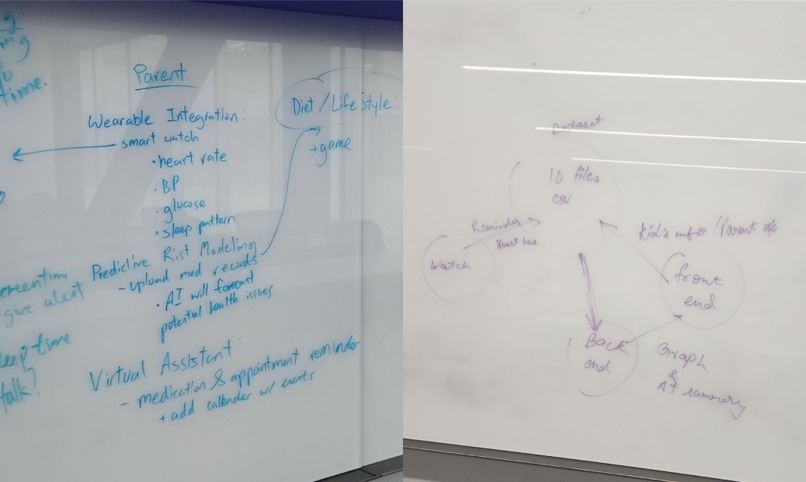 time.
Parent
Wearable Integration:
smart watch
• heart rate
• BP
• glucose
• sleep pattern
Predictive Rist Modeling:
- upload med records
• AI will forecast
potential health issues
Virtual Assistant:
- medication & appointment reminder
+ add callender w/ events
Diet / Life Style:
→ game
give alert
time
talk?
dataset
10 files
csv
Reminder
Watch
Kid's info / Parent
front
end
Back
end
Graph
&
AI summary